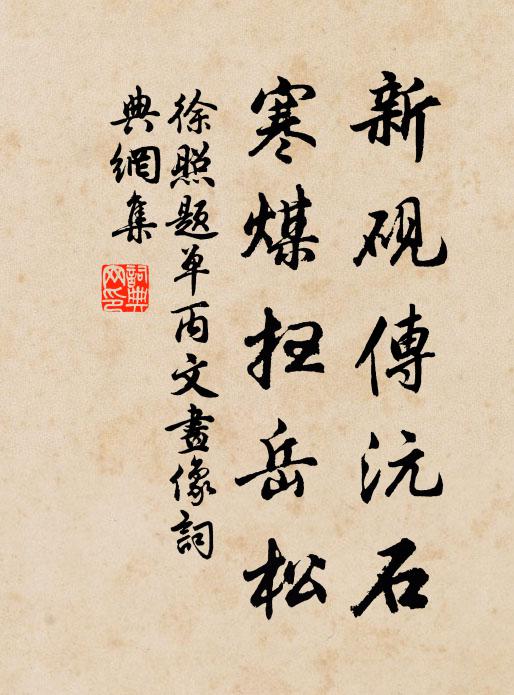 新砚傳沅石
寒煤扫岳松
徐照题单丙文畫像詞
典網集
詞典
网印